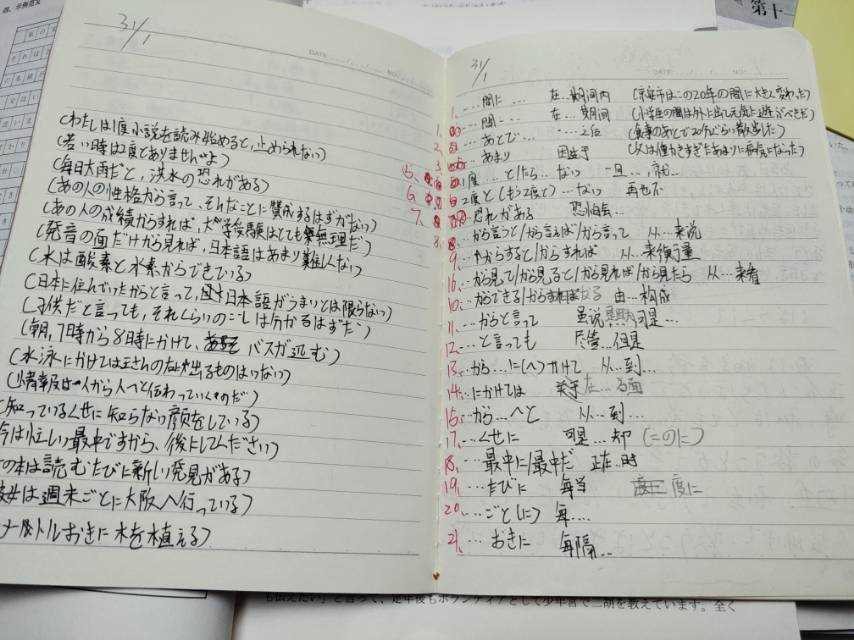 31/1
DATE
(わたしは1度小説を読み始めると,止められない)
(若い時は2度とありませんよ)
(毎日大雨だと,洪水の恐れがある)
(あの人の性格から言って,そんなことに賛成するはずがない)
(あの人の成績からすれば,大学受験はとても無理だ)
(発音の面だけから見れば,日本語はあまり難しくない)
(水は酸素と水素からできている)
(日本に住んでいたからと言って,日本語がうまいとは限らない)
(子供だと言っても,それくらいのことは分かるはずだ)
(朝,7時から8時にかけて,バスが込む)
(水泳にかけては王さんの右に出るものはいない)
(情報は人から人へと伝わっていくものだ)
(知っているくせに知らない顔をしている)
今は忙しい最中ですから,後にしてください)
の本は読むたびに新しい発見がある)
彼女は週末ごとに大阪へ行っている)
メートルおきに木を植える)
31/1
DATE
1. …間に… 在…期间内 (京安市はこの20年の間に大きく変わった)
2. 間… 在…期间 (小学生の間は外に出て元気に遊ぶべきだ)
3. あとで… …之后 (食事のあとで20分ぐらい散歩した)
あまり 因过于 (父は働きすぎたあまりに病気になった)
5. 1度…と/たら…ない 一旦…,就…
6. 2度と(もう2度と)…ない 再也不
7. 恐れがある 恐怕会…
8. …から言うと/から言えば/から言って 从…来说
9. …からすると/からすれば 从…来衡量
16. から見て/から見ると/から見れば/から見たら 从…来看
10. …からできる/からなる 由…构成
11. …からと言って 虽说…但是…
12. …と言っても 尽管…但是
13. …から…に(へ)かけて 从…到…
14. …にかけては 关于在…方面
15. …から…へと 从…到…
17. …くせに 可是…却 (このに)
18. …最中に/最中だ 正在…时
19. …たびに 每当 度に
20. …ごと(に) 每…
21. …おきに 每隔…
も伝えたい」と言って、定年後もボランティアとして少年宮で二胡を教えています。全く
第十